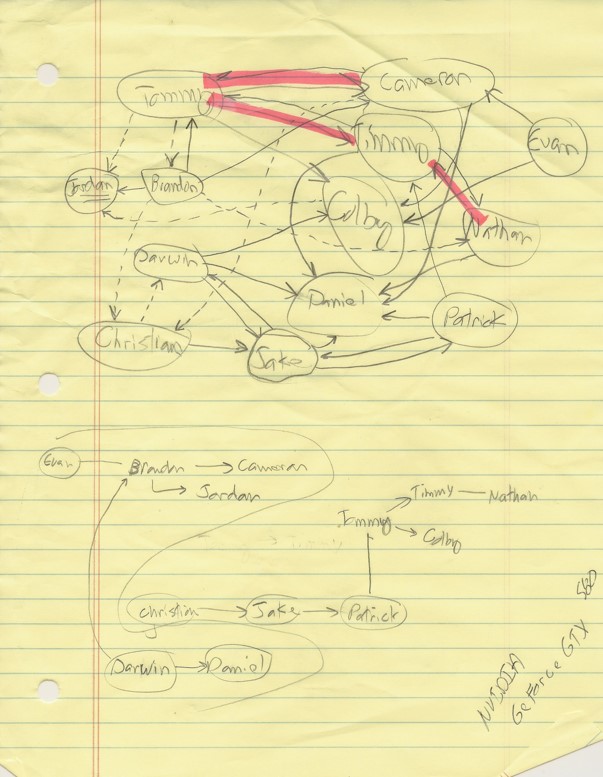 Tammy
Cameron
Timmy
Evan
Jordan
Brandon
Colby
Nathan
Darwin
Daniel
Patrick
Christian
Jake
Evan
Brandon
Cameron
Jordan
Timmy
Nathan
Tammy
Colby
Christian
Jake
Patrick
Darwin
Daniel
NVIDIA
GeForce GTX
560